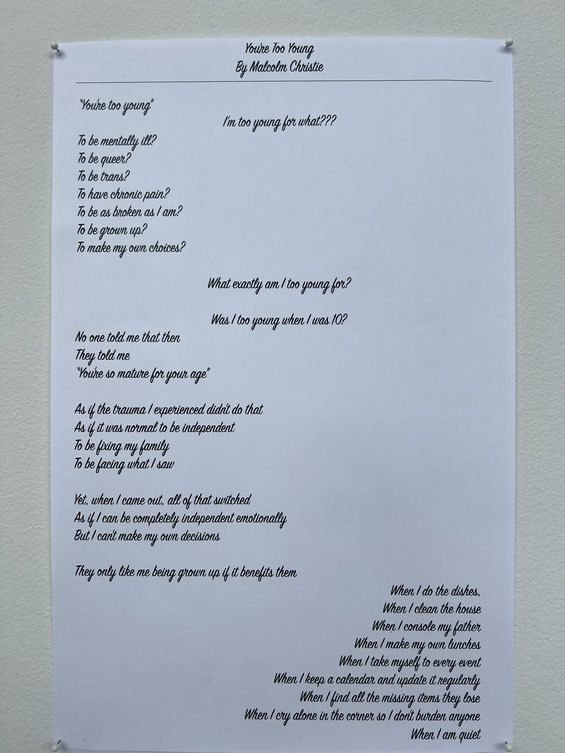 You're Too Young
By Malcolm Christie
"You're too young"
I'm too young for what???
To be mentally ill?
To be queer?
To be trans?
To have chronic pain?
To be as broken as I am?
To be grown up?
To make my own choices?
What exactly am I too young for?
Was I too young when I was 10?
No one told me that then
They told me
"You're so mature for your age"
As if the trauma I experienced didn't do that
As if it was normal to be independent
To be fixing my family
To be facing what I saw
Yet, when I came out, all of that switched
As if I can be completely independent emotionally
But I can't make my own decisions
They only like me being grown up if it benefits them
When I do the dishes,
When I clean the house
When I console my father
When I make my own lunches
When I take myself to every event
When I keep a calendar and update it regularly
When I find all the missing items they lose
When I cry alone in the corner so I don't burden anyone
When I am quiet